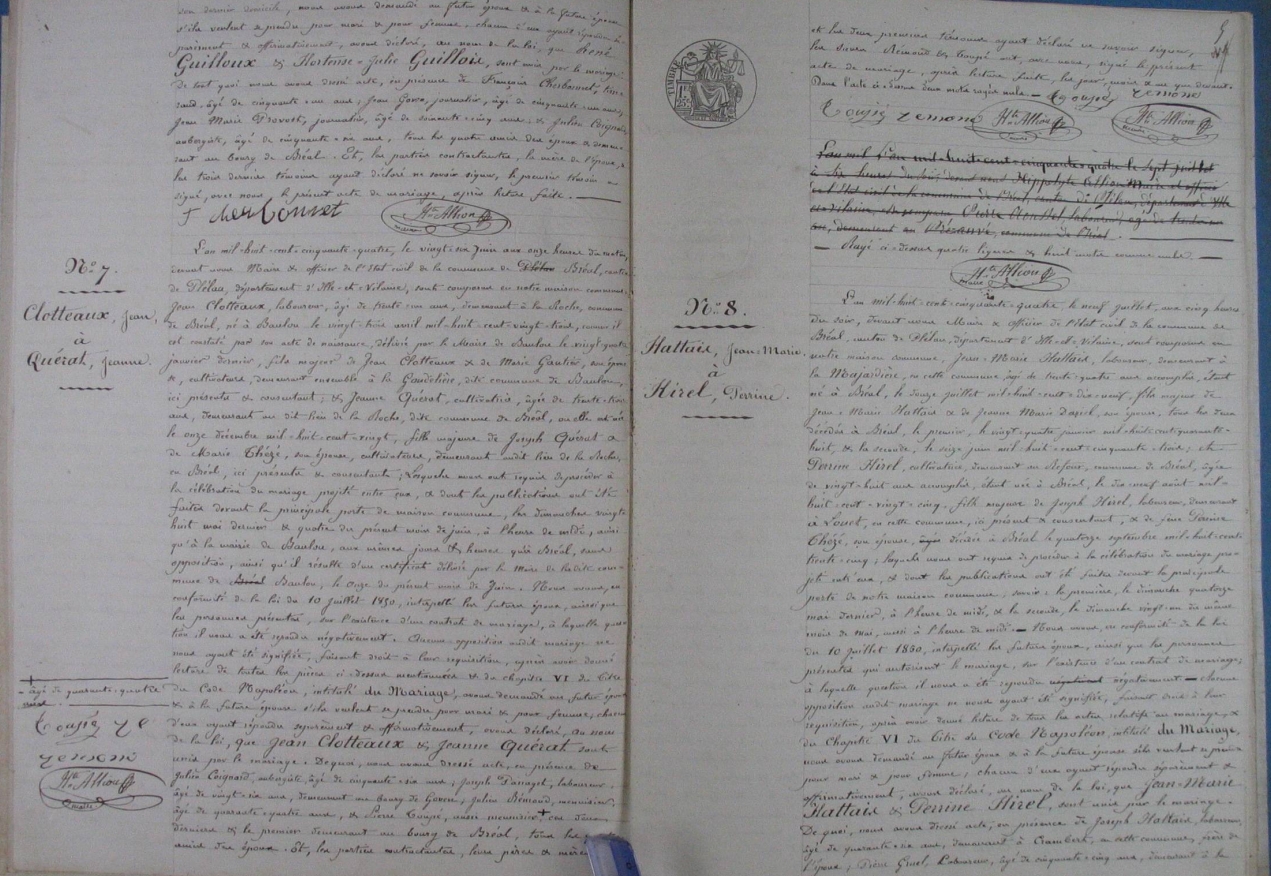 son dernier domicile, nous avons demandé au futur époux & à la future épouse
s'ils veulent se prendre pour mari & pour femme, chacun d'eux ayant répondu sé-
parément & affirmativement, avons déclaré, au nom de la loi, que René
Guilloux & Hortense-Julie Guillois, sont unis par le mariage.
De tout quoi nous avons dressé acte, en présence de François Cherbonnet,
âgé de cinquante-un ans, Jean journalier, âgé de cinquante-un ans,
Jean Marie Provost, journalier, âgé de soixante-cinq ans & Julien Coignard,
aubergiste, âgé de cinquante-six ans, tous les quatre amis des époux & demeu-
rant au bourg de Bréal. Et, les parties contractantes, la mère de l'épouse, &
les trois derniers témoins ayant déclaré ne savoir signer, le premier témoin a
signé, avec nous le présent acte de mariage, après lecture faite.
Cherbonnet
Hte Allion
maire
N° 7.
Clotteaux, Jean,
à
Quérat, Jeanne.
L'an mil-huit-cent-cinquante-quatre, le vingt-six Juin aux onze heures du matin,
devant nous Maire & officier de l'état civil de la commune de Plélan Bréal, canton
de Plélan, département d'Ille-et-Vilaine, sont comparus en notre maison commune,
Jean Clotteaux, laboureur, âgé de trente-un ans, demeurant à la Roche, commune
de Bréal, né à Baulon le vingt-trois avril mil-huit-cent-vingt-trois, comme il
est constaté par son acte de naissance, délivré par le Maire de Baulon le vingt-quatre
janvier dernier, fils majeur de Jean Clotteaux & de Marie Gautier, son épou-
se, cultivateurs, demeurant ensemble à la Gaudelière, dite commune de Baulon,
ici présents & consentant; & Jeanne Quérat, cultivatrice, âgée de trente-trois
ans, demeurant au dit lieu de la Roche, dite commune de Bréal, où elle est née
le onze décembre mil-huit-cent-vingt, fille majeure de Joseph Quérat &
de Marie Thézé, son épouse, cultivateurs, demeurant audit lieu de la Roche,
en Bréal, ici présents & consentants; Lesquels nous ont requis de procéder à
la célébration du mariage projeté entre eux, & dont les publications ont été
faites devant la principale porte de maison commune, les dimanches vingt-
huit mai dernier & quatre du présent mois de juin, à l'heure de midi, ainsi
qu'à la mairie de Baulon, aux mêmes jours & heures qu'à Bréal, sans
opposition, ainsi qu'il résulte d'un certificat délivré par le Maire de la dite com-
mune de Bréal Baulon, le onze du présent mois de Juin. Nous avons, en
conformité de la loi du 10 Juillet 1850, interpellé les futurs époux, ainsi que
les personnes présentes, sur l'existence d'un contrat de mariage, à laquelle ques-
tion il nous a été répondu négativement. Aucune opposition audit mariage ne
nous ayant été signifiée, faisant droit à leur réquisition, après avoir donné
lecture de toutes les pièces ci-dessus mentionnées & du chapitre VI du titre
du Code Napoléon, intitulé du Mariage, avons demandé au futur époux
& à la future épouse s'ils veulent se prendre pour mari & pour femme, chacun
d'eux ayant répondu séparément & affirmativement, avons déclaré, au nom
de la loi, que Jean Clotteaux & Jeanne Quérat sont
unis par le mariage. De quoi, nous avons dressé acte, en présence de
Julien Coignard, aubergiste, âgé de cinquante-six ans, Joseph laboureur,
âgé de vingt-six ans, demeurant au bourg de Goven, Julien Rémond, menuisier,
âgé de quarante-quatre ans, & Pierre Tougé, aussi menuisier, + ces deux
derniers & le premier demeurant au bourg de Bréal, tous les quatre
amis des époux. Et, les parties contractantes, leurs pères & mères
+ âgé de quarante-quatre
ans.
Tougé
remond
Hte Allion
maire
5
TIMBRE
1f 25c
et les deux premiers témoins ayant déclaré ne savoir signer,
les sieurs Rémond & Tougé ont, avec nous, signé le présent
acte de mariage, après lecture faite, les jour, mois & an que devant.
Dans l'acte ci-dessus deux mots rayés nuls. Tougé remond
Tougé remond Hte Allion
maire
Hte Allion
maire
L'an mil L'an mil-huit-cent-cinquante-quatre le Sept Juillet
à six heures du soir, devant nous Hippolyte Allion Maire et officier
de l'état civil de la commune de Bréal, canton de Plélan, département d'Ille
et-vilaine, est comparu Pierre laboureur, âgé de trente-six
ans, demeurant au commune de Bréal.
— Rayé ci-dessus quatre lignes & huit mots comme nuls. —
Hte Allion
maire
N° 8.
Hattais, Jean-Marie.
à
Hirel, Perrine.
L'an mil-huit-cent-cinquante-quatre le neuf juillet, aux cinq heures
du soir, devant nous Maire & officier de l'état civil de la commune de
Bréal, canton de Plélan, département d'Ille-et-Vilaine, sont comparus en
notre maison commune, Jean-Marie Hattais, laboureur, demeurant à
la Mujardière, en cette commune, âgé de trente-quatre ans accomplis, étant
né à Bréal, le douze juillet mil-huit-cent-dix-neuf, fils majeur de
Jean-Marie Hattais & de Jeanne Marie son épouse, tous les deux
décédés à Bréal, le premier, le vingt-quatre janvier mil-huit-cent-quarante-
huit, & la seconde, le seize juin mil-huit-cent-cinquante-trois; et
Perrine Hirel, cultivatrice, demeurant au commune de Bréal, âgée
de vingt-huit ans accomplis, étant née à Bréal, le dix-neuf août mil-
huit-cent-vingt-cinq, fille majeure de Joseph Hirel, laboureur, demeurant
à en cette commune, ici présent & consentant, & de feue Perrine
Thézé, son épouse, décédée à Bréal le quatorze septembre mil-huit-cent-
trente-cinq; lesquels nous ont requis de procéder à la célébration du mariage pro-
jeté entr'eux, & dont les publications ont été faites devant la principale
porte de notre maison commune, savoir: la première, le dimanche quatorze
mai dernier, à l'heure de midi, & la seconde, le dimanche vingt-un du même
mois de Mai, aussi à l'heure de midi. — Nous avons, en conformité de la loi
du 10 juillet 1850, interpellé les futurs époux, ainsi que les personnes
présentes qui autorisent le mariage, sur l'existence d'un contrat de mariage;
à laquelle question il nous a été répondu négativement. — Aucune
opposition audit mariage ne nous ayant été signifiée, faisant droit à leur
réquisition, après avoir donné lecture de tous les actes relatifs au mariage, &
du Chapitre VI du titre du Code Napoléon, intitulé du Mariage,
nous avons demandé au futur époux & à la future épouse s'ils veulent se prendre
pour mari & pour femme; chacun d'eux ayant répondu séparément &
affirmativement, avons déclaré, au nom de la loi, que Jean-Marie
Hattais & Perrine Hirel, sont unis par le mariage.
De quoi, nous avons dressé acte, en présence de Joseph Hattais, laboureur,
âgé de quarante-six ans, demeurant à en cette commune, frère de
l'époux; Pierre Gruel, Laboureur, âgé de cinquante-cinq ans, demeurant à la